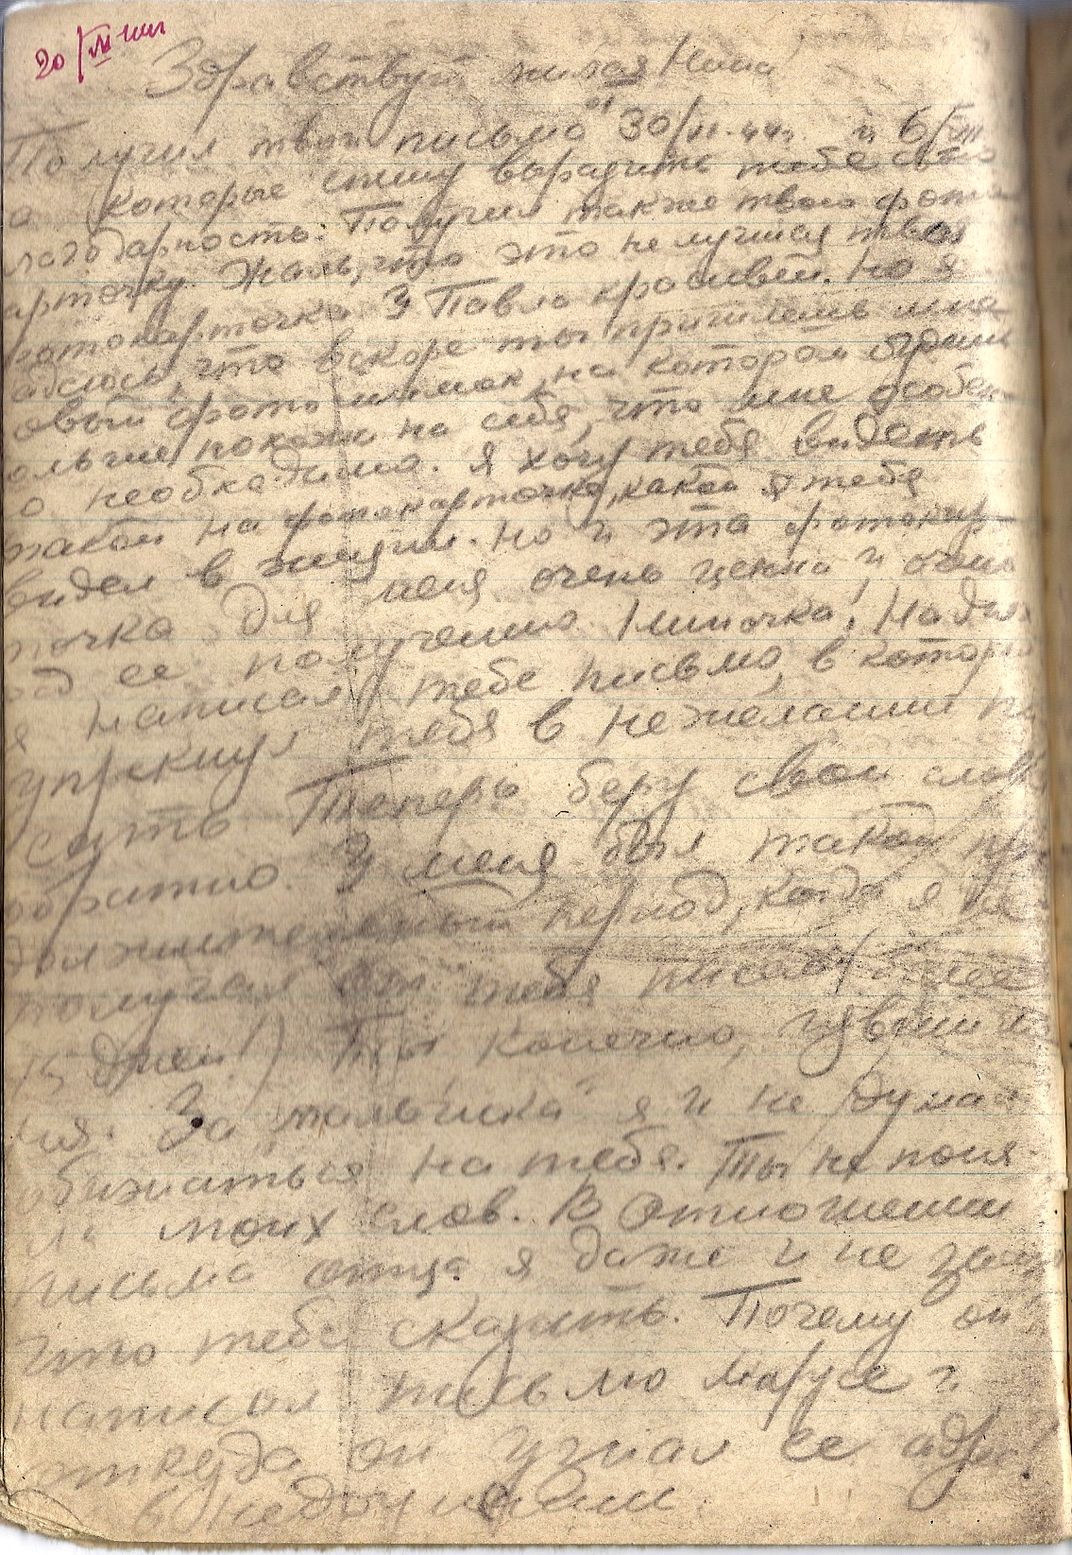 20/VI
Здравствуй милая Нина
Получил твои письма от 30/VI-44г. и 6/VII
а которые спешу выразить тебе свою
лагодарность. Получил также твою фото
арточку. Жаль, что это не лучшая твоя
отокарточка. У Павла красивей. Но я
адеюсь, что вскоре ты пришлешь мне
овый фотоснимок, на котором будешь
ольше похожа на себя, что мне особен
о необходимо. Я хочу тебя видеть
такой на фотокарточке, какой я тебя
видел в жизни. Но и эта фотокар-
точка для меня очень ценна и очень
ад ее получению. Ниночка! На днях
я написал тебе письмо, в котором
упрекнул тебя в нежелании пи
сать. Теперь беру свои слова
обратно. У меня был такой про
должительный период, когда я не
получал от тебя писем (более
15 дней!) Ты конечно, извини
ня. За "мальчика" я и не думал
обижаться на тебя. Ты не поня-
ла моих слов. В отношении
письма отца я даже и не знаю
что тебе сказать. Почему он
написал письмо Марусе и
откуда он узнал ее адрес
в недоумении.